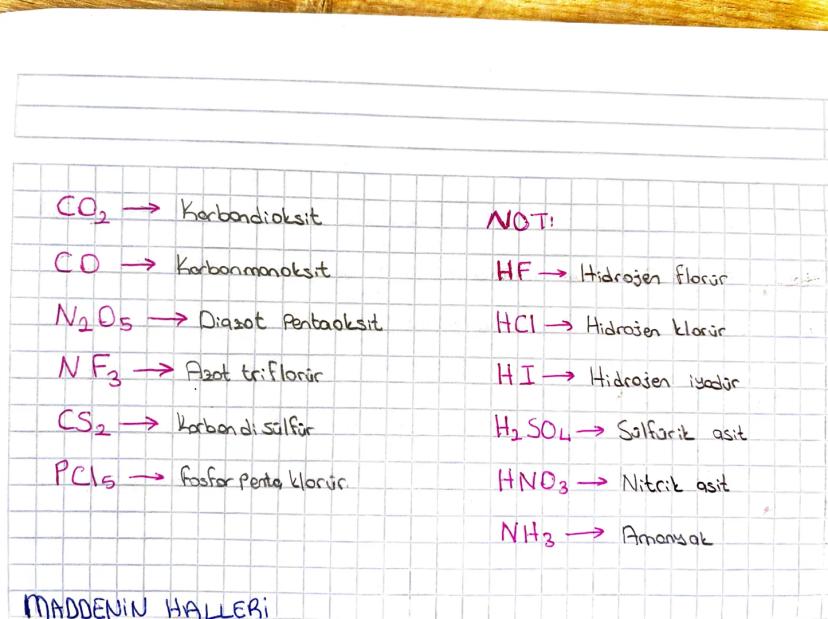 CO₂ → Karbondioksit
CO → Karbonmonoksit
N₂O₅ → Diazot Pentaoksit
NF₃ → Azot triflorür
CS₂ → Karbon di sülfür
PCl₅ → fosfor penta klorür
NOT:
HF → Hidrojen florür
HCl → Hidrojen klorür
HI → Hidrojen iyodür
H₂SO₄ → Sülfürik asit
HNO₃ → Nitrik asit
NH₃ → Amonyak
MADDENİN HALLERİ